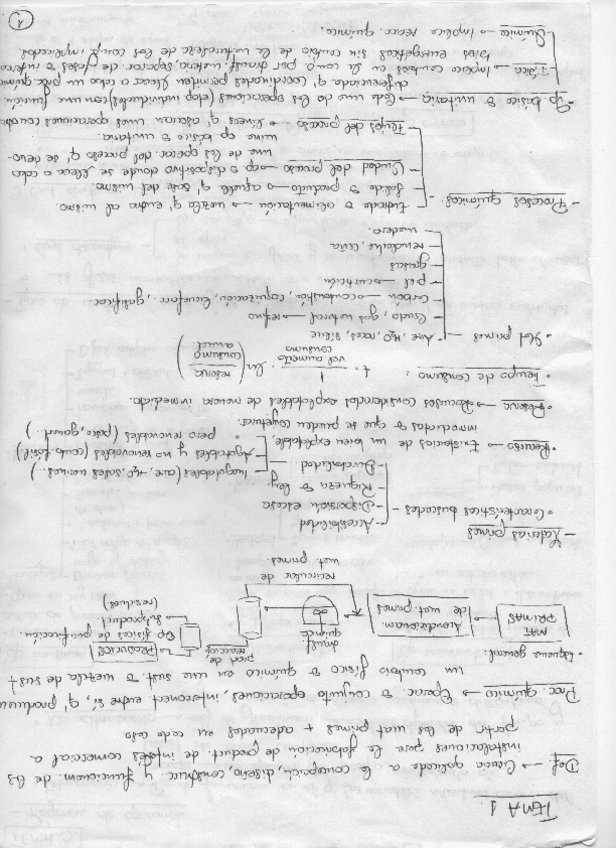 TEMA 1.
Def → Ciencia aplicada a la concepción, diseño, construcc. y funcionam. de las
instalaciones para la fabricación de product. de interés comercial a
partir de las mat primas + adecuadas en cada caso
Proc. químico → Operac. o conjunto operaciones, interconect. entre sí, q' producen
un cambio físico o químico en una sust. o mezcla de sust
• Esquema general:
MAT PRIMAS
Acondicionam. de mat. primas
químic
prod. de reacción
PRODUCTOS
Op físicas de purificación
Subproduct. (residuos)
recircular de
mat. primas.
- Materias primas
• Características buscadas
Accesibilidad
Dispersión escasa
Riqueza o ley
Durabilidad
• Recurso → Existencias de un bien explotable,
Inagotables (aire, H2O, sales marinas...)
Agotables y no renovables (crudo, fósil)
" pero renovables (peces, ganad...)
• Reserva → Recursos considerados explotables de manera inmediata.
• Tiempo de Consumo: t = 1 / vel. aumento consumo · Ln (reserva / consumo anual)
• Mat primas
Aire, H2O, rocas, sílice
Crudo, gas natural → refino
Carbón → combustión, coquización, licuefacc., gasificac.
piel → curtición
grasas
remolacha, caña
madera.
- Procesos químicos:
Entrada o alimentación → mezcla q' entra al mismo.
Salida o producto → aquella q' sale del mismo
Unidad del proceso → op o dispositivo donde se lleva a cabo
una de las operac. del proceso
una op básica o unitaria.
Flujos del proceso → líneas q' enlazan unas operaciones
- Op básica o unitaria → Cada una de las operaciones (etap) individuales con una función
diferenciada q', coordinadas permiten llevar a cabo un proc químic
Física → Implica cambios en la comp. por transf. materia, separac. o
bias energéticos sin cambio de la naturaleza de los comp. implicados.
Química → Implica reacc. química.
1